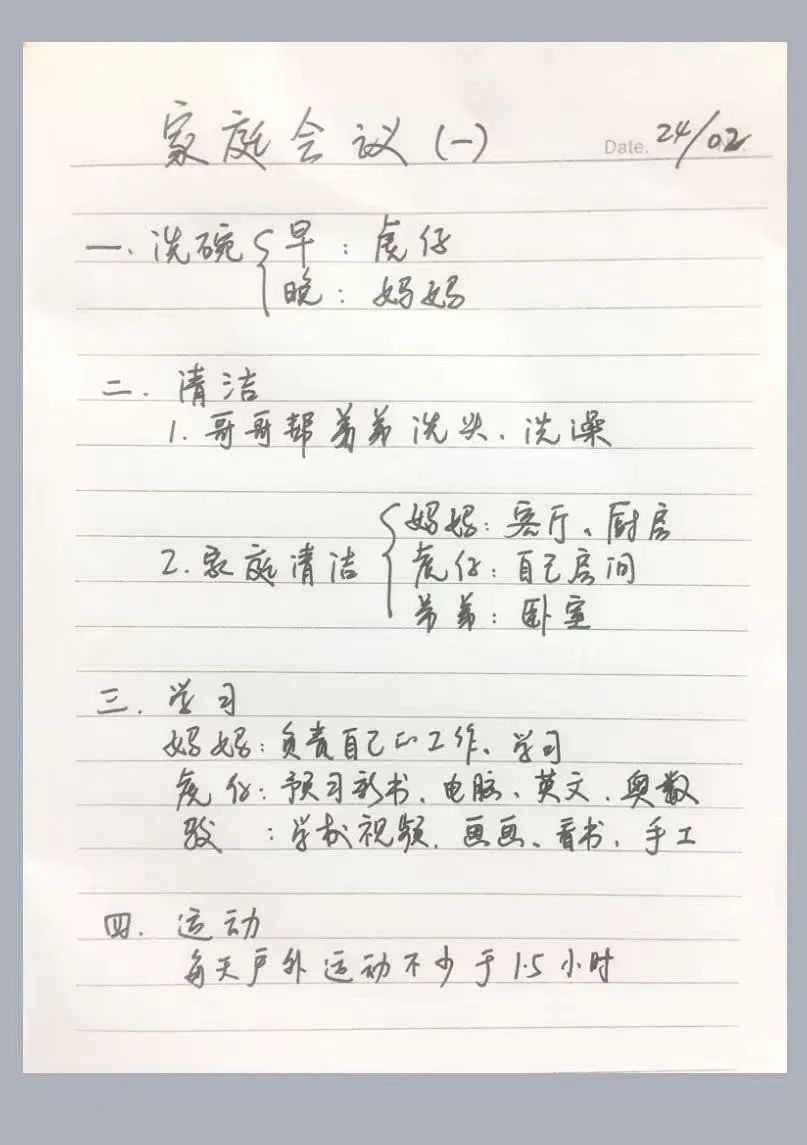 家庭会议(一)
Date. 24/02
一. 洗碗 { 早：虎仔
晚：妈妈
二. 清洁
1. 哥哥帮弟弟洗头、洗澡
2. 家庭清洁 { 妈妈：客厅、厨房
虎仔：自己房间
弟弟：卧室
三. 学习
妈妈：负责自己的工作、学习
虎仔：预习新书、电脑、英文、奥数
骏：学校视频、画画、看书、手工
四. 运动
每天户外运动不少于1.5小时